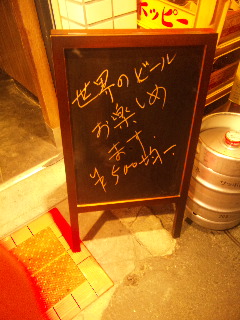 ホッピー
世界のビール
お楽しめ
ます.
¥500均一